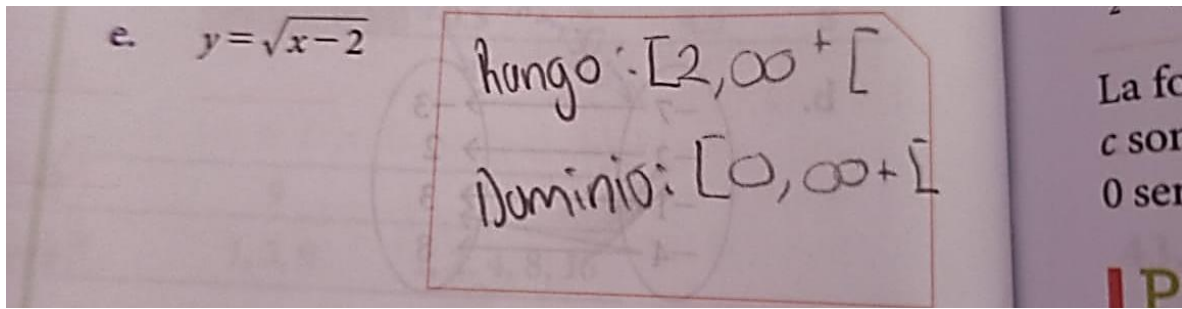 e. y=√x−2
Rango: [2,∞⁺[
Dominio: [0,∞+[
La fo
c son
0 ser
P